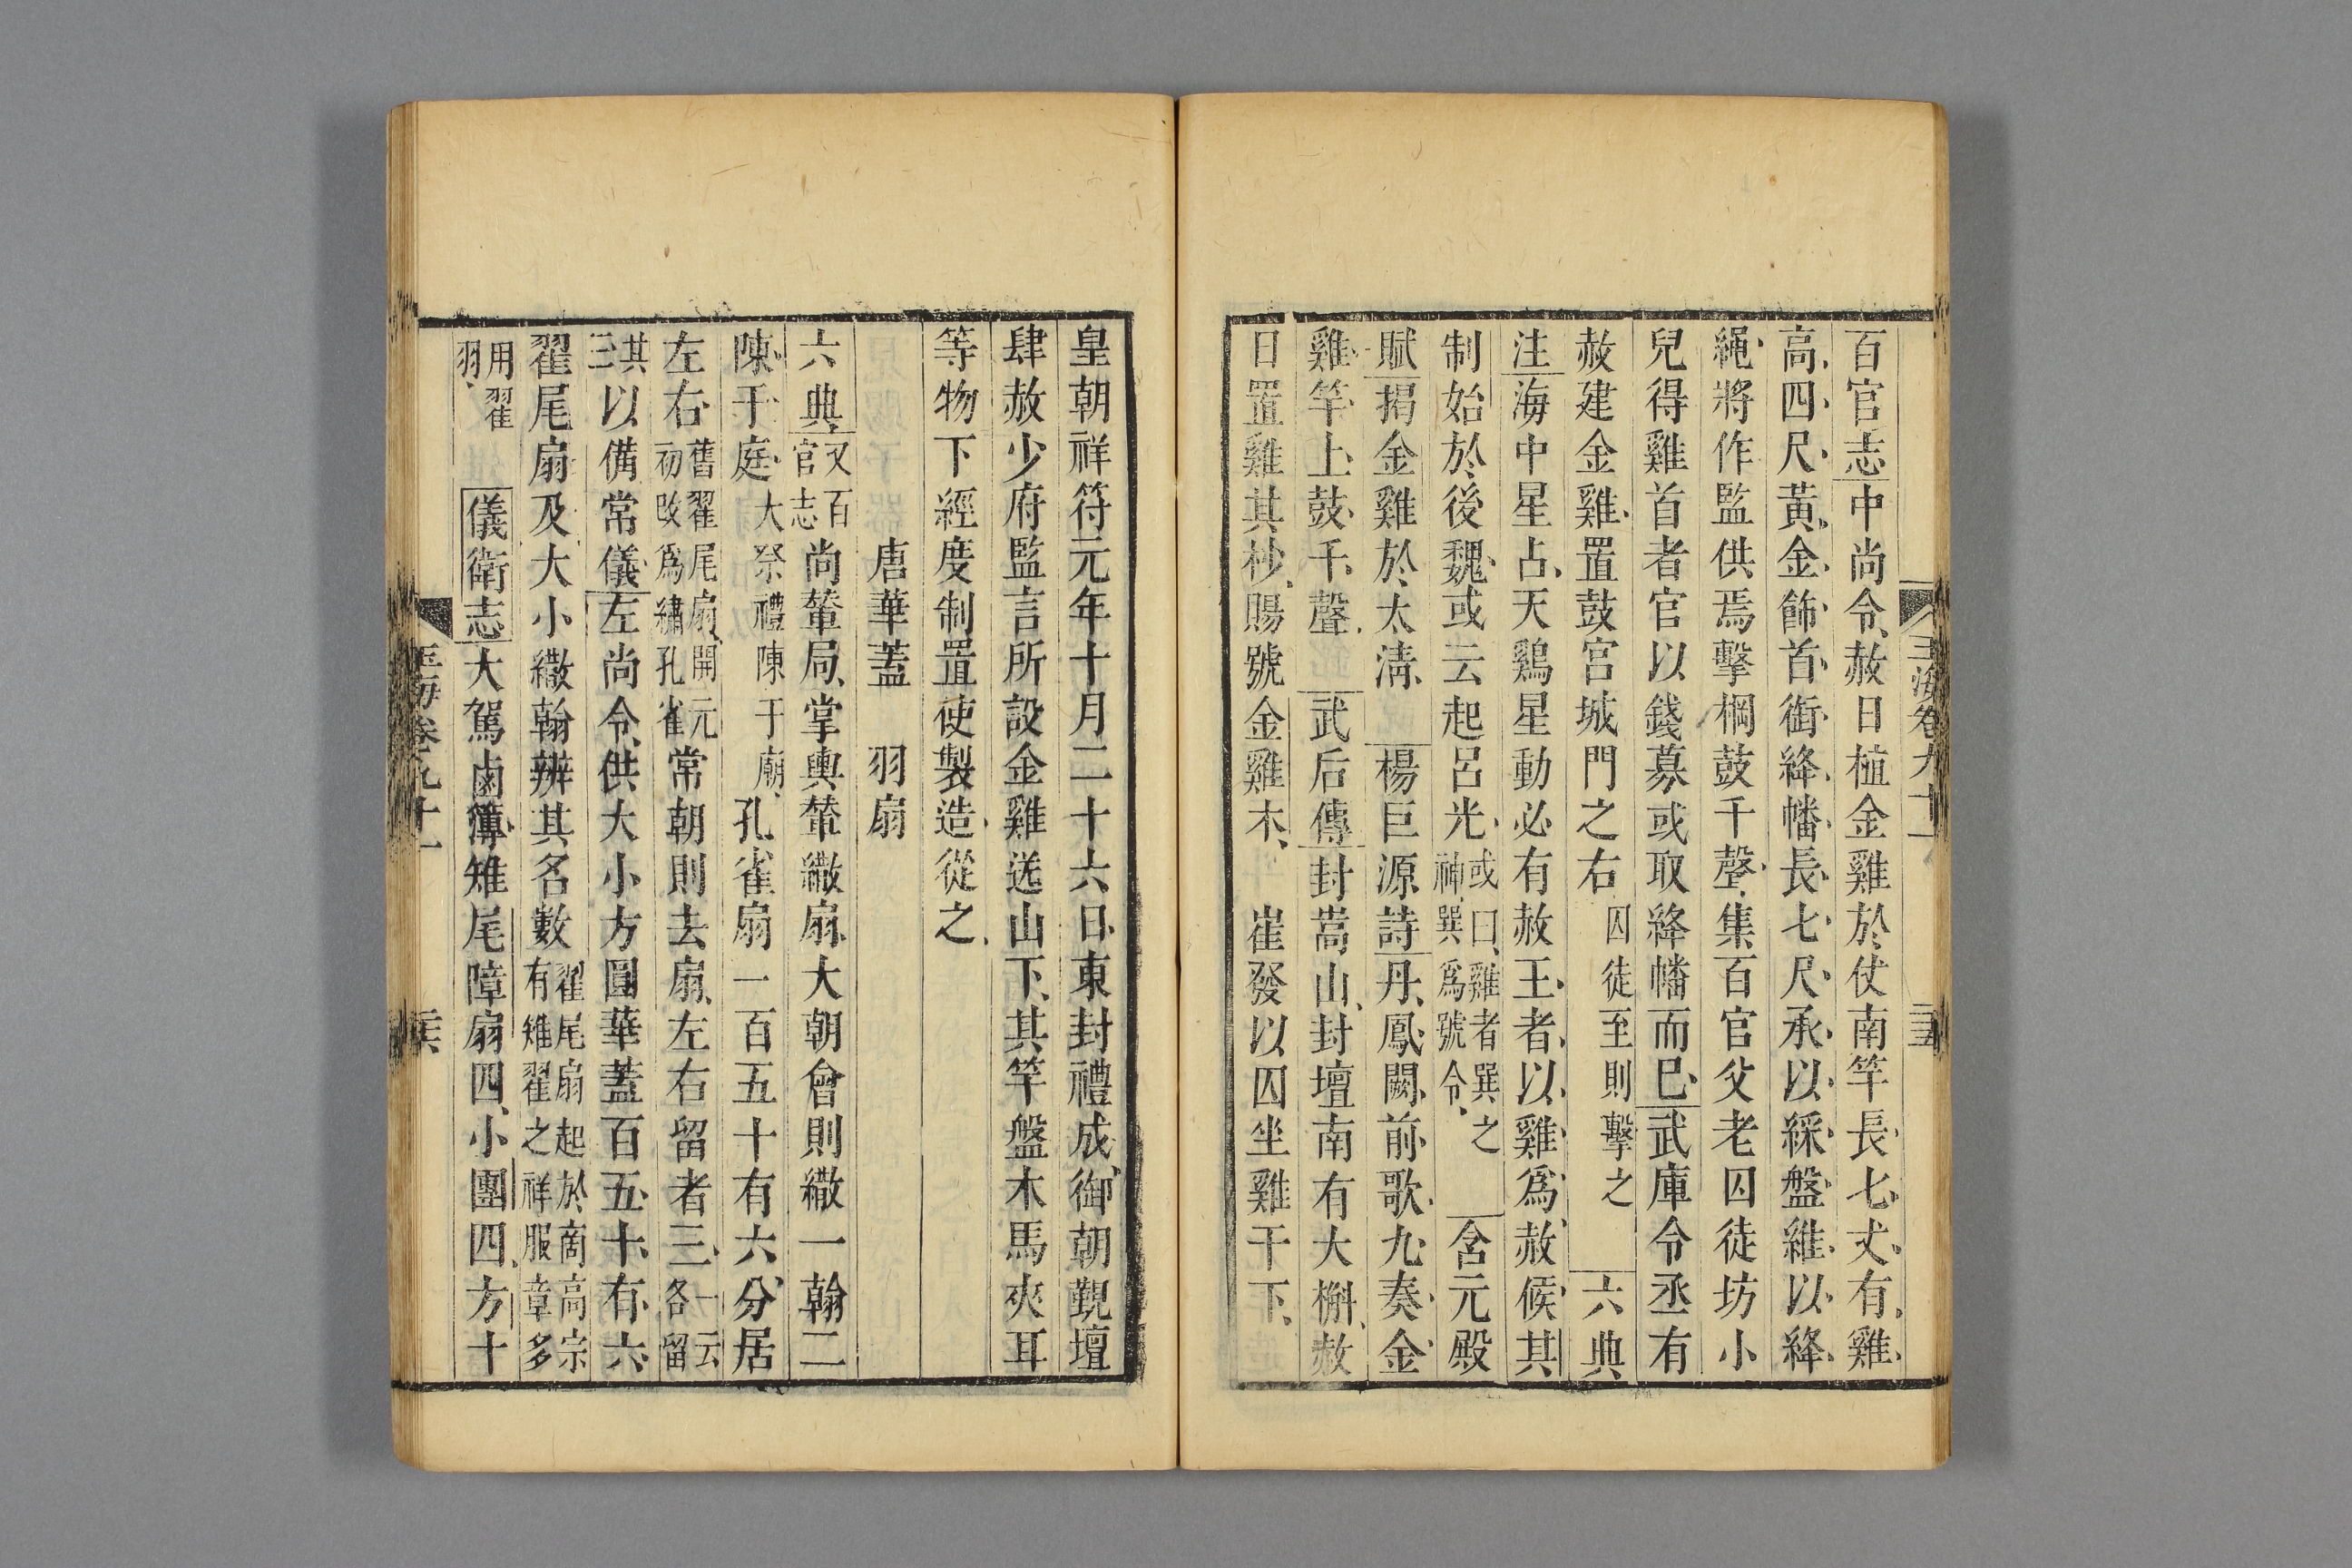 百官志中尚令赦日植金雞於仗南竿長七丈有雞
高四尺黃金飾首銜絳幡長七尺承以綵盤維以絳
繩將作監供焉擊棡鼓千聲集百官父老囚徒坊小
兒得雞首者官以錢募或取絳幡而已武庫令丞有
赦建金雞置鼓宮城門之右囚徒至則擊之六典
注海中星占天鷄星動必有赦王者以雞爲赦候其
制始於後魏或云起呂光或曰雞者巽之神巽爲號令含元殿
賦揭金雞於太淸楊巨源詩丹鳳闕前歌九奏金
雞竿上鼓千聲武后傳封嵩山封壇南有大槲赦
日置雞其杪賜號金雞木崔發以囚坐雞干下
玉海卷九十一
皇朝祥符元年十月二十六日東封禮成御朝覲壇
肆赦少府監言所設金雞送山下其竿盤木馬夾耳
等物下經度制置使製造從之
唐華蓋 羽扇
六典又百官志尚輦局掌輿輦繖扇大朝會則繖一翰二
陳于庭大祭禮陳于廟孔雀扇一百五十有六分居
左右舊翟尾扇開元初改爲繡孔雀常朝則去扇左右留者三一云各留
其三以備常儀左尚令供大小方圓華蓋百五十有六
翟尾扇及大小繖翰辨其名數翟尾扇起於商高宗有雉翟之祥服章多
用翟羽儀衛志大駕鹵簿雉尾障扇四小團四方十
玉海卷九十一